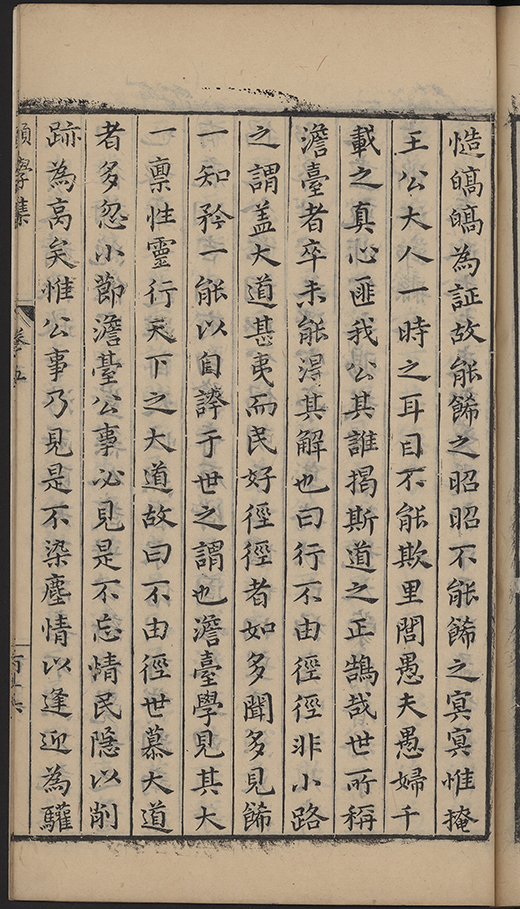 慥皜皜為証故能餙之昭昭不能餙之㝠㝠惟掩
王公大人一時之耳目不能欺里閭愚夫愚婦千
載之真心匪我公其誰揭斯道之正鵠哉世所稱
澹臺者卒未能淂其解也曰行不由徑徑非小路
之謂盖大道甚夷而民好徑徑者如多聞多見餙
一知矜一能以自誇于世之謂也澹臺學見其大
一禀性靈行天下之大道故曰不由徑世慕大道
者多忽小節澹臺公事必見是不忘情民隱以削
跡為高矣惟公事乃見是不染塵情以逢迎為驩
學集
卷五